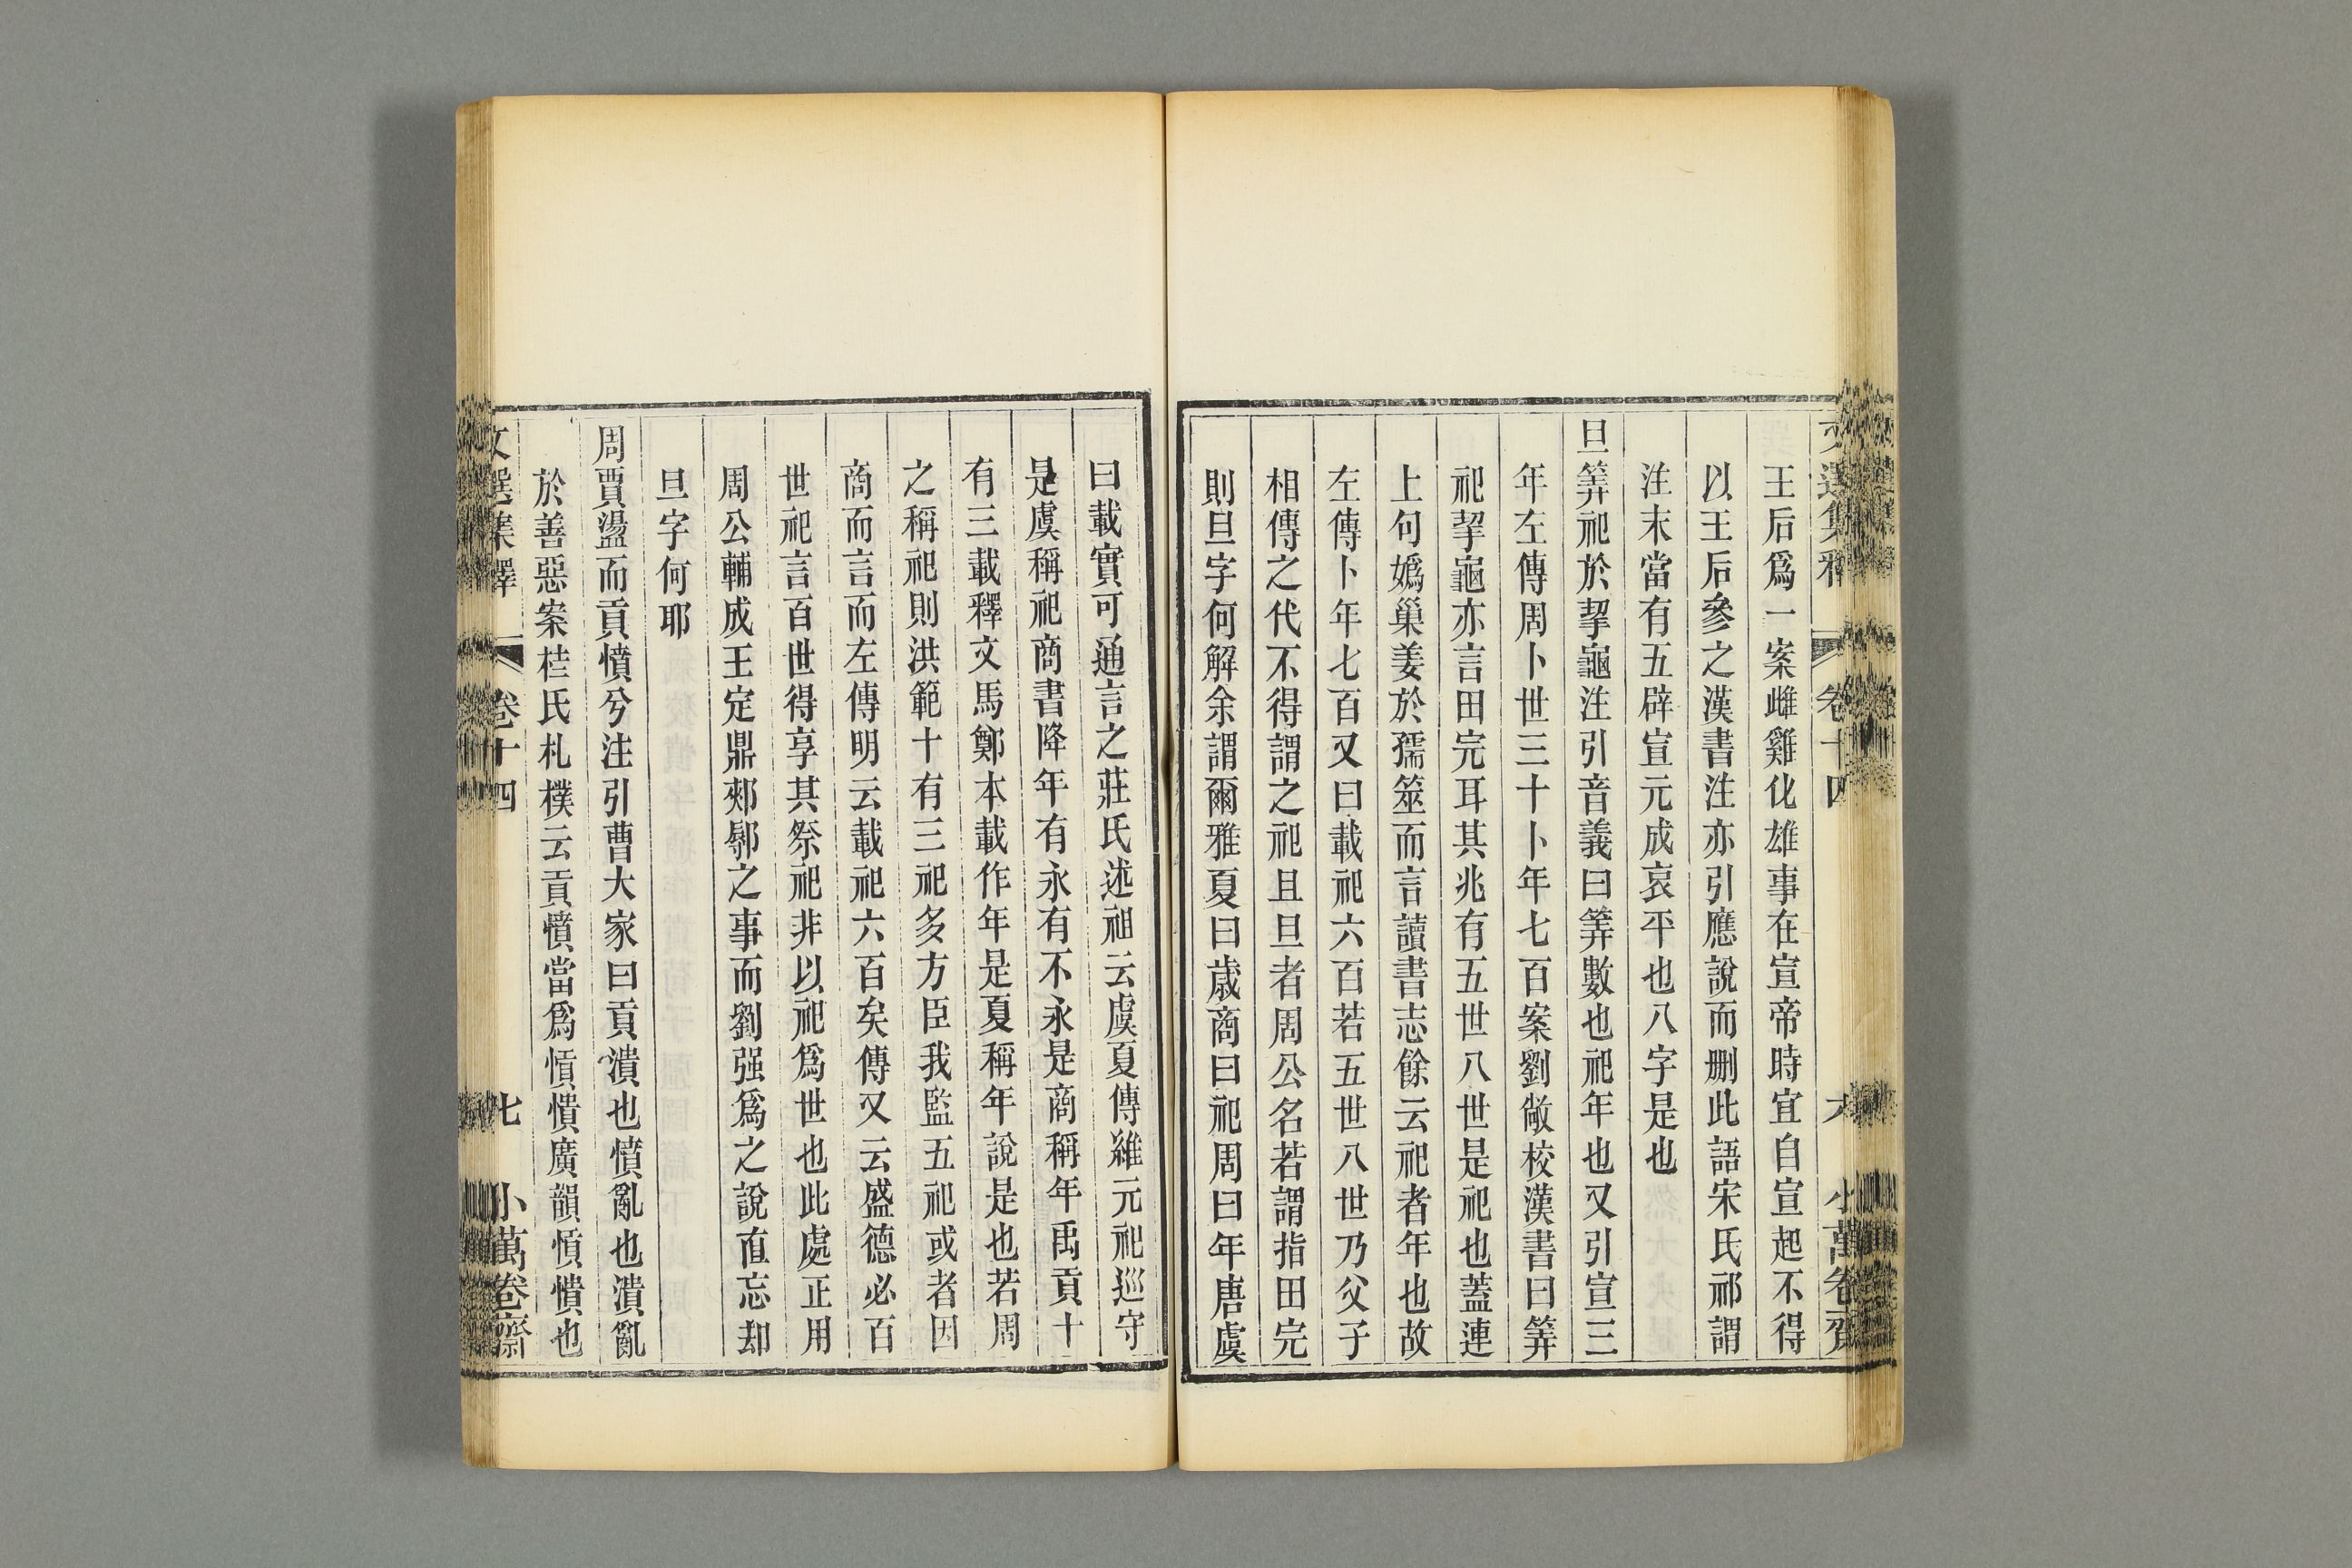 文選集釋 卷十四 六 小萬卷齋
王后爲一案雌雞化雄事在宣帝時宜自宣起不得
以王后參之漢書注亦引應說而刪此語宋氏祁謂
注末當有五辟宣元成哀平也八字是也
旦筭祀於挈龜注引音義曰筭數也祀年也又引宣三
年左傳周卜世三十卜年七百案劉敞校漢書曰筭
祀挈龜亦言田完耳其兆有五世八世是祀也蓋連
上句嬀巢姜於孺筮而言讀書志餘云祀者年也故
左傳卜年七百又曰載祀六百若五世八世乃父子
相傳之代不得謂之祀且旦者周公名若謂指田完
則旦字何解余謂爾雅夏曰歲商曰祀周曰年唐虞
曰載實可通言之莊氏述祖云虞夏傳維元祀巡守
是虞稱祀商書降年有永有不永是商稱年禹貢十
有三載釋文馬鄭本載作年是夏稱年說是也若周
之稱祀則洪範十有三祀多方臣我監五祀或者因
商而言而左傳明云載祀六百矣傳又云盛德必百
世祀言百世得享其祭祀非以祀爲世也此處正用
周公輔成王定鼎郟鄏之事而劉强爲之說直忘却
旦字何耶
周賈盪而貢憤兮注引曹大家曰貢潰也憤亂也潰亂
於善惡案桂氏札樸云貢憤當爲愩憒廣韻愩憒也
文選集釋 卷十四 七 小萬卷齋